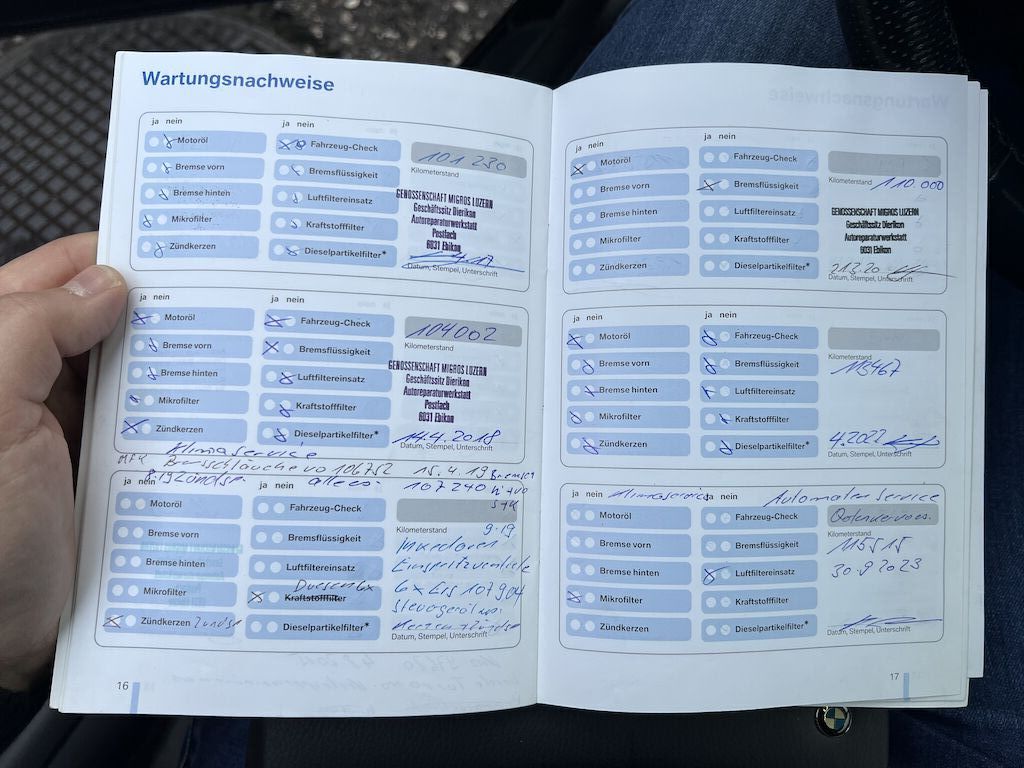 Wartungsnachweise
ja nein
ja nein
Motoröl
Fahrzeug-Check
101 230
Bremse vorn
Bremsflüssigkeit
Kilometerstand
Bremse hinten
Luftfiltereinsatz
GENOSSENSCHAFT MIGROS LUZERN
Geschäftssitz Dierikon
Mikrofilter
Kraftstofffilter
Autoreparaturwerkstatt
Postfach
Zündkerzen
Dieselpartikelfilter*
6031 Ebikon
Datum, Stempel, Unterschrift
ja nein
ja nein
Motoröl
Fahrzeug-Check
104002
Bremse vorn
Bremsflüssigkeit
Kilometerstand
Bremse hinten
Luftfiltereinsatz
GENOSSENSCHAFT MIGROS LUZERN
Geschäftssitz Dierikon
Mikrofilter
Kraftstofffilter
Autoreparaturwerkstatt
Postfach
6031 Ebikon
Zündkerzen
Dieselpartikelfilter*
14.4.2018
Datum, Stempel, Unterschrift
Klimaservice
MFK 106752 15.4.19
107240
ja nein
ja nein
Motoröl
Fahrzeug-Check
Kilometerstand
9.19
Bremse vorn
Bremsflüssigkeit
Bremse hinten
Luftfiltereinsatz
Einspritzventile
Mikrofilter
Kraftstofffilter
6x 107904
Zündkerzen
Dieselpartikelfilter*
Datum, Stempel, Unterschrift
16
ja nein
ja nein
Motoröl
Fahrzeug-Check
Bremse vorn
Bremsflüssigkeit
Kilometerstand
110.000
Bremse hinten
Luftfiltereinsatz
GENOSSENSCHAFT MIGROS LUZERN
Geschäftssitz Dierikon
Mikrofilter
Kraftstofffilter
Autoreparaturwerkstatt
Postfach
6031 Ebikon
Zündkerzen
Dieselpartikelfilter*
21.3.20
Datum, Stempel, Unterschrift
ja nein
ja nein
Motoröl
Fahrzeug-Check
Bremse vorn
Bremsflüssigkeit
Kilometerstand
115467
Bremse hinten
Luftfiltereinsatz
Mikrofilter
Kraftstofffilter
Zündkerzen
Dieselpartikelfilter*
4.2022
Datum, Stempel, Unterschrift
ja nein Klimaservice
ja nein Automaten Service
Motoröl
Fahrzeug-Check
Bremse vorn
Bremsflüssigkeit
Kilometerstand
115515
Bremse hinten
Luftfiltereinsatz
30.9.2023
Mikrofilter
Kraftstofffilter
Zündkerzen
Dieselpartikelfilter*
Datum, Stempel, Unterschrift
17